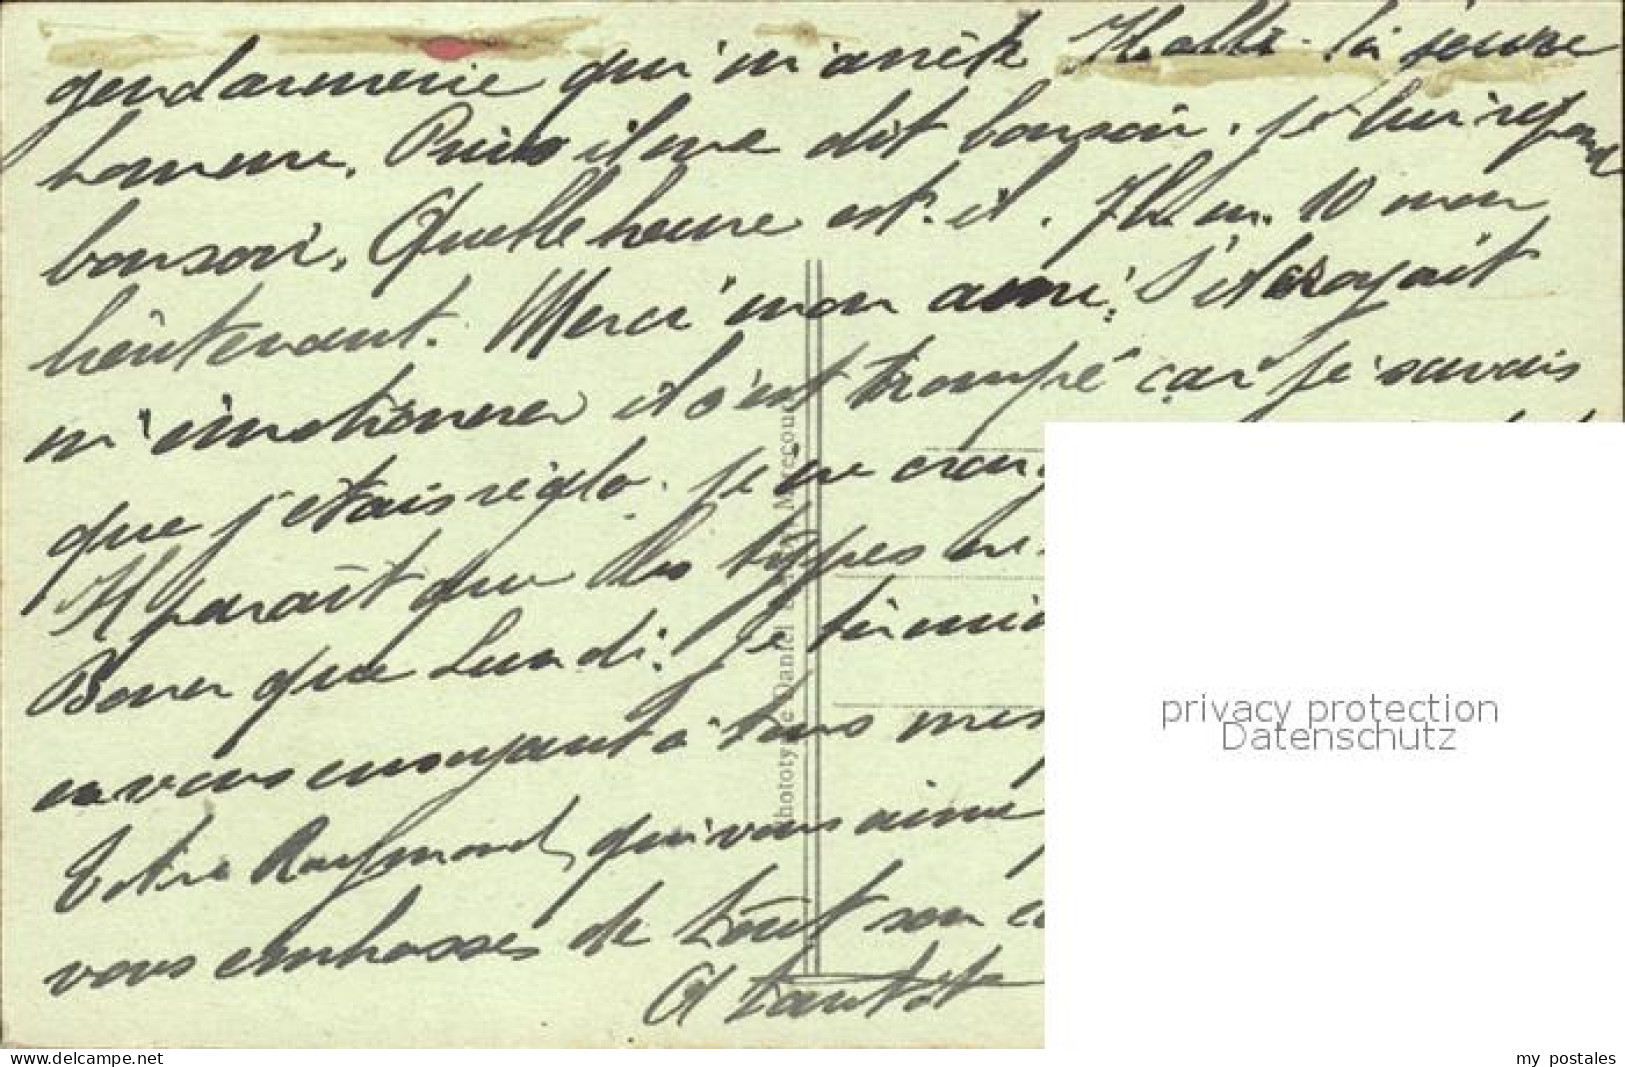 gendarmerie qui m'arrête Halte-là jeune
homme. Puis il me dit bonsoir. Je lui répond
bonsoir. Quelle heure est-il. 7h m. 10 mon
lieutenant. Merci mon ami, S'il croyait
m' il s'est trompé car je savais
que j'étais réglo. Je ne
Il parait que les types
que Lundi. Je
en vous envoyant à tous mes
Votre Raymond, qui vous aime
vous embrasses de tout son
A tantôt
Phototypie Daniel Mirecourt
privacy protection
Datenschutz
www.delcampe.net
my postales